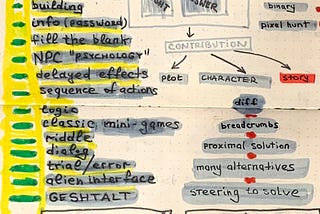 building
info (password)
fill the blank
NPC "PSYCHOLOGY"
delayed effects
sequence of actions
logic
classic mini-games
riddle
dialog
trial/error
alien interface
GESHTALT
CONTRIBUTION
plot
CHARACTER
story
diff
breadcrumbs
proximal solution
many alternatives
steering to solve
binary
pixel hunt